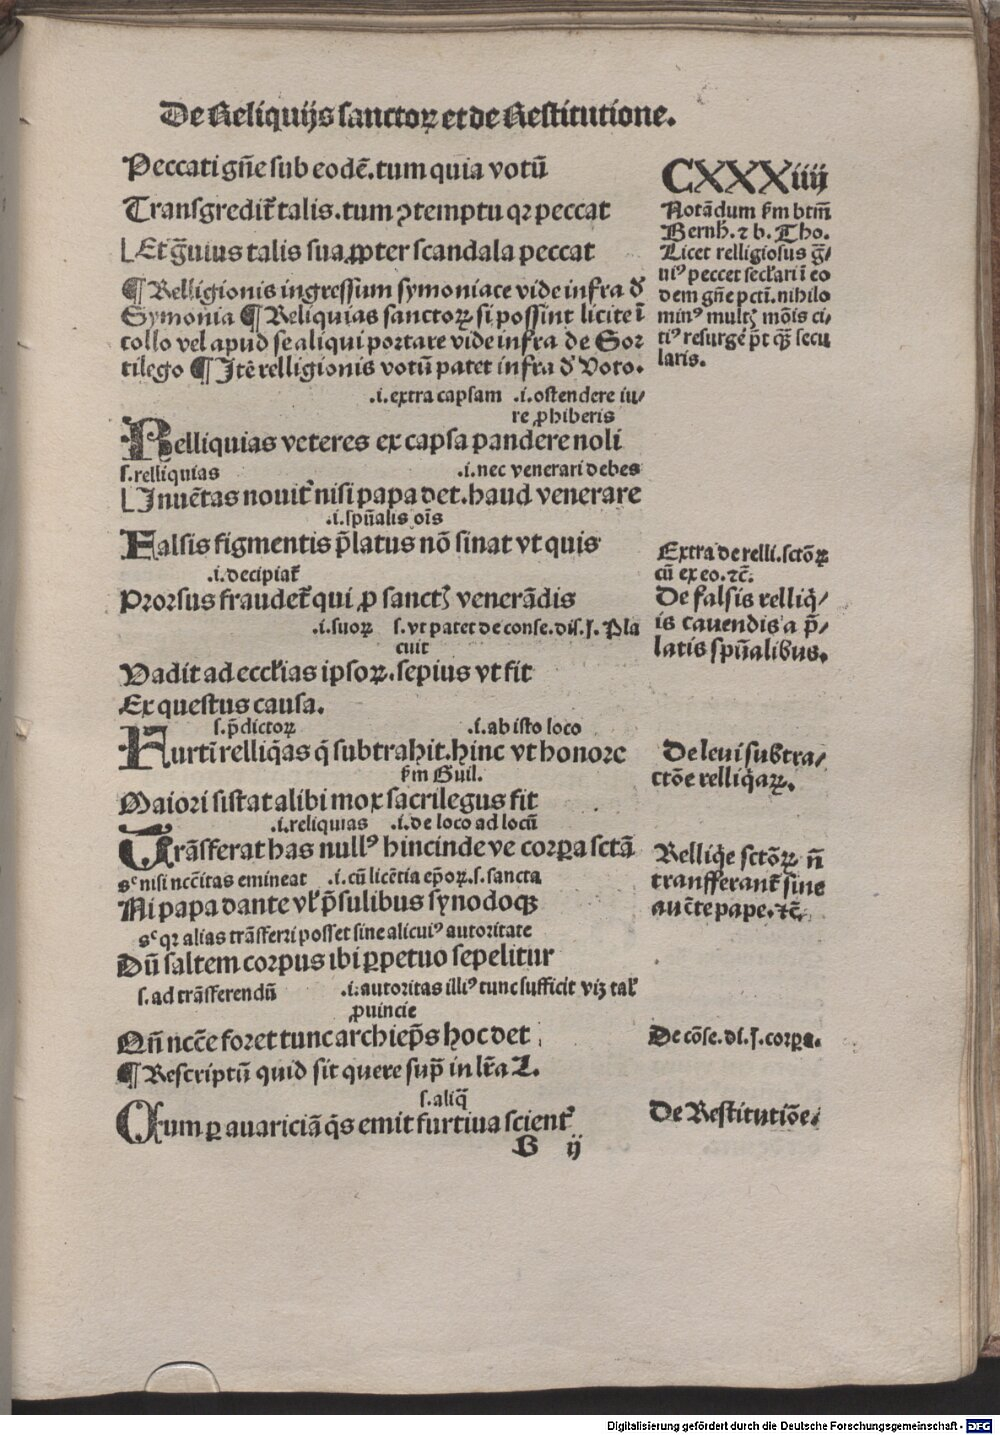 De Reliquijs sanctoꝝ et de Restitutione.
CXXXiiij
Peccati gñe sub eodē. tum quia votū
Transgredit᷑ talis. tum ꝯtemptu qꝛ peccat
Et g̃uius talis sua ꝓpter scandala peccat
¶ Relligionis ingressum symoniace vide infra ď
Symonia ¶ Reliquias sanctoꝝ si possint licite ī
collo vel apud se aliqui portare vide infra de Sor
tilego ¶ Itē relligionis votū patet infra ď Voto.
Notādum ẜm btm̄
Bernḣ. ⁊ b. Tho.
Licet relligiosus g̃/
niꝰ peccet seclari ī eo
dem gñe pctī. nihilo
minꝰ multꝭ mōis ci/
tiꝰ resurgē p̄t qȝ̄ secu
laris.
.i. extra capsam .i. ostendere iu/
re ꝓhiberis
Relliquias veteres ex capsa pandere noli
s. relliquias .i. nec venerari debes
Inuētas nouit᷑ nisi papa det. haud venerare
.i. spūalis oīs
Falsis figmentis p̄latus nō sinat vt quis
.i. decipiat᷑
Prorsus fraudet᷑ qui ꝓ sanctꝭ venerādis
.i. suoꝝ s. vt patet de conse. dis. j. Pla
cuit
Vadit ad ecclias ipsoꝝ. sepius vt fit
Ex questus causa.
Extra de relli. sctōꝝ
cū ex eo. ⁊c̄.
De falsis relliq̄/
is cauendis a p̄/
latis spūalibus.
s. p̄dictoꝝ .i. ab isto loco
Furtī relliq̄as q̄ subtrahit. hinc vt honore
ẜm Guil.
Maiori sistat alibi mox sacrilegus fit
De leui subtra/
ctōe relliq̄aꝝ.
.i. reliquias .i. de loco ad locū
Trāsferat has nullꝰ hincinde ve corꝑa sctā
sᶜ nisi nccītas emineat .i. cū licētia ep̄oꝝ. s. sancta
Ni papa dante vl̛ p̄sulibus synodoqȝ
sᶜ qꝛ alias trāsferri posset sine alicuiꝰ autoritate
Dū saltem corpus ibi ꝑpetuo sepelitur
Relliq̄e sctōꝝ n̄
tranfferant᷑ sine
auc̄te pape. ⁊c̄.
s. ad trāsferendū .i. autoritas illiꝰ tunc sufficit viȝ tal̛
ꝓuincie
Qn̄ ncc̄e foret tunc archiep̄s hoc det
De cōse. di. j. corꝑa.
¶ Rescriptū quid sit quere sup̄ in lr̄a L.
s. aliq̄
Cum ꝑ auariciā q̄s emit furtiua scient᷑
De Restitutiōe.
B ij
Digitalisierung gefördert durch die Deutsche Forschungsgemeinschaft - DFG